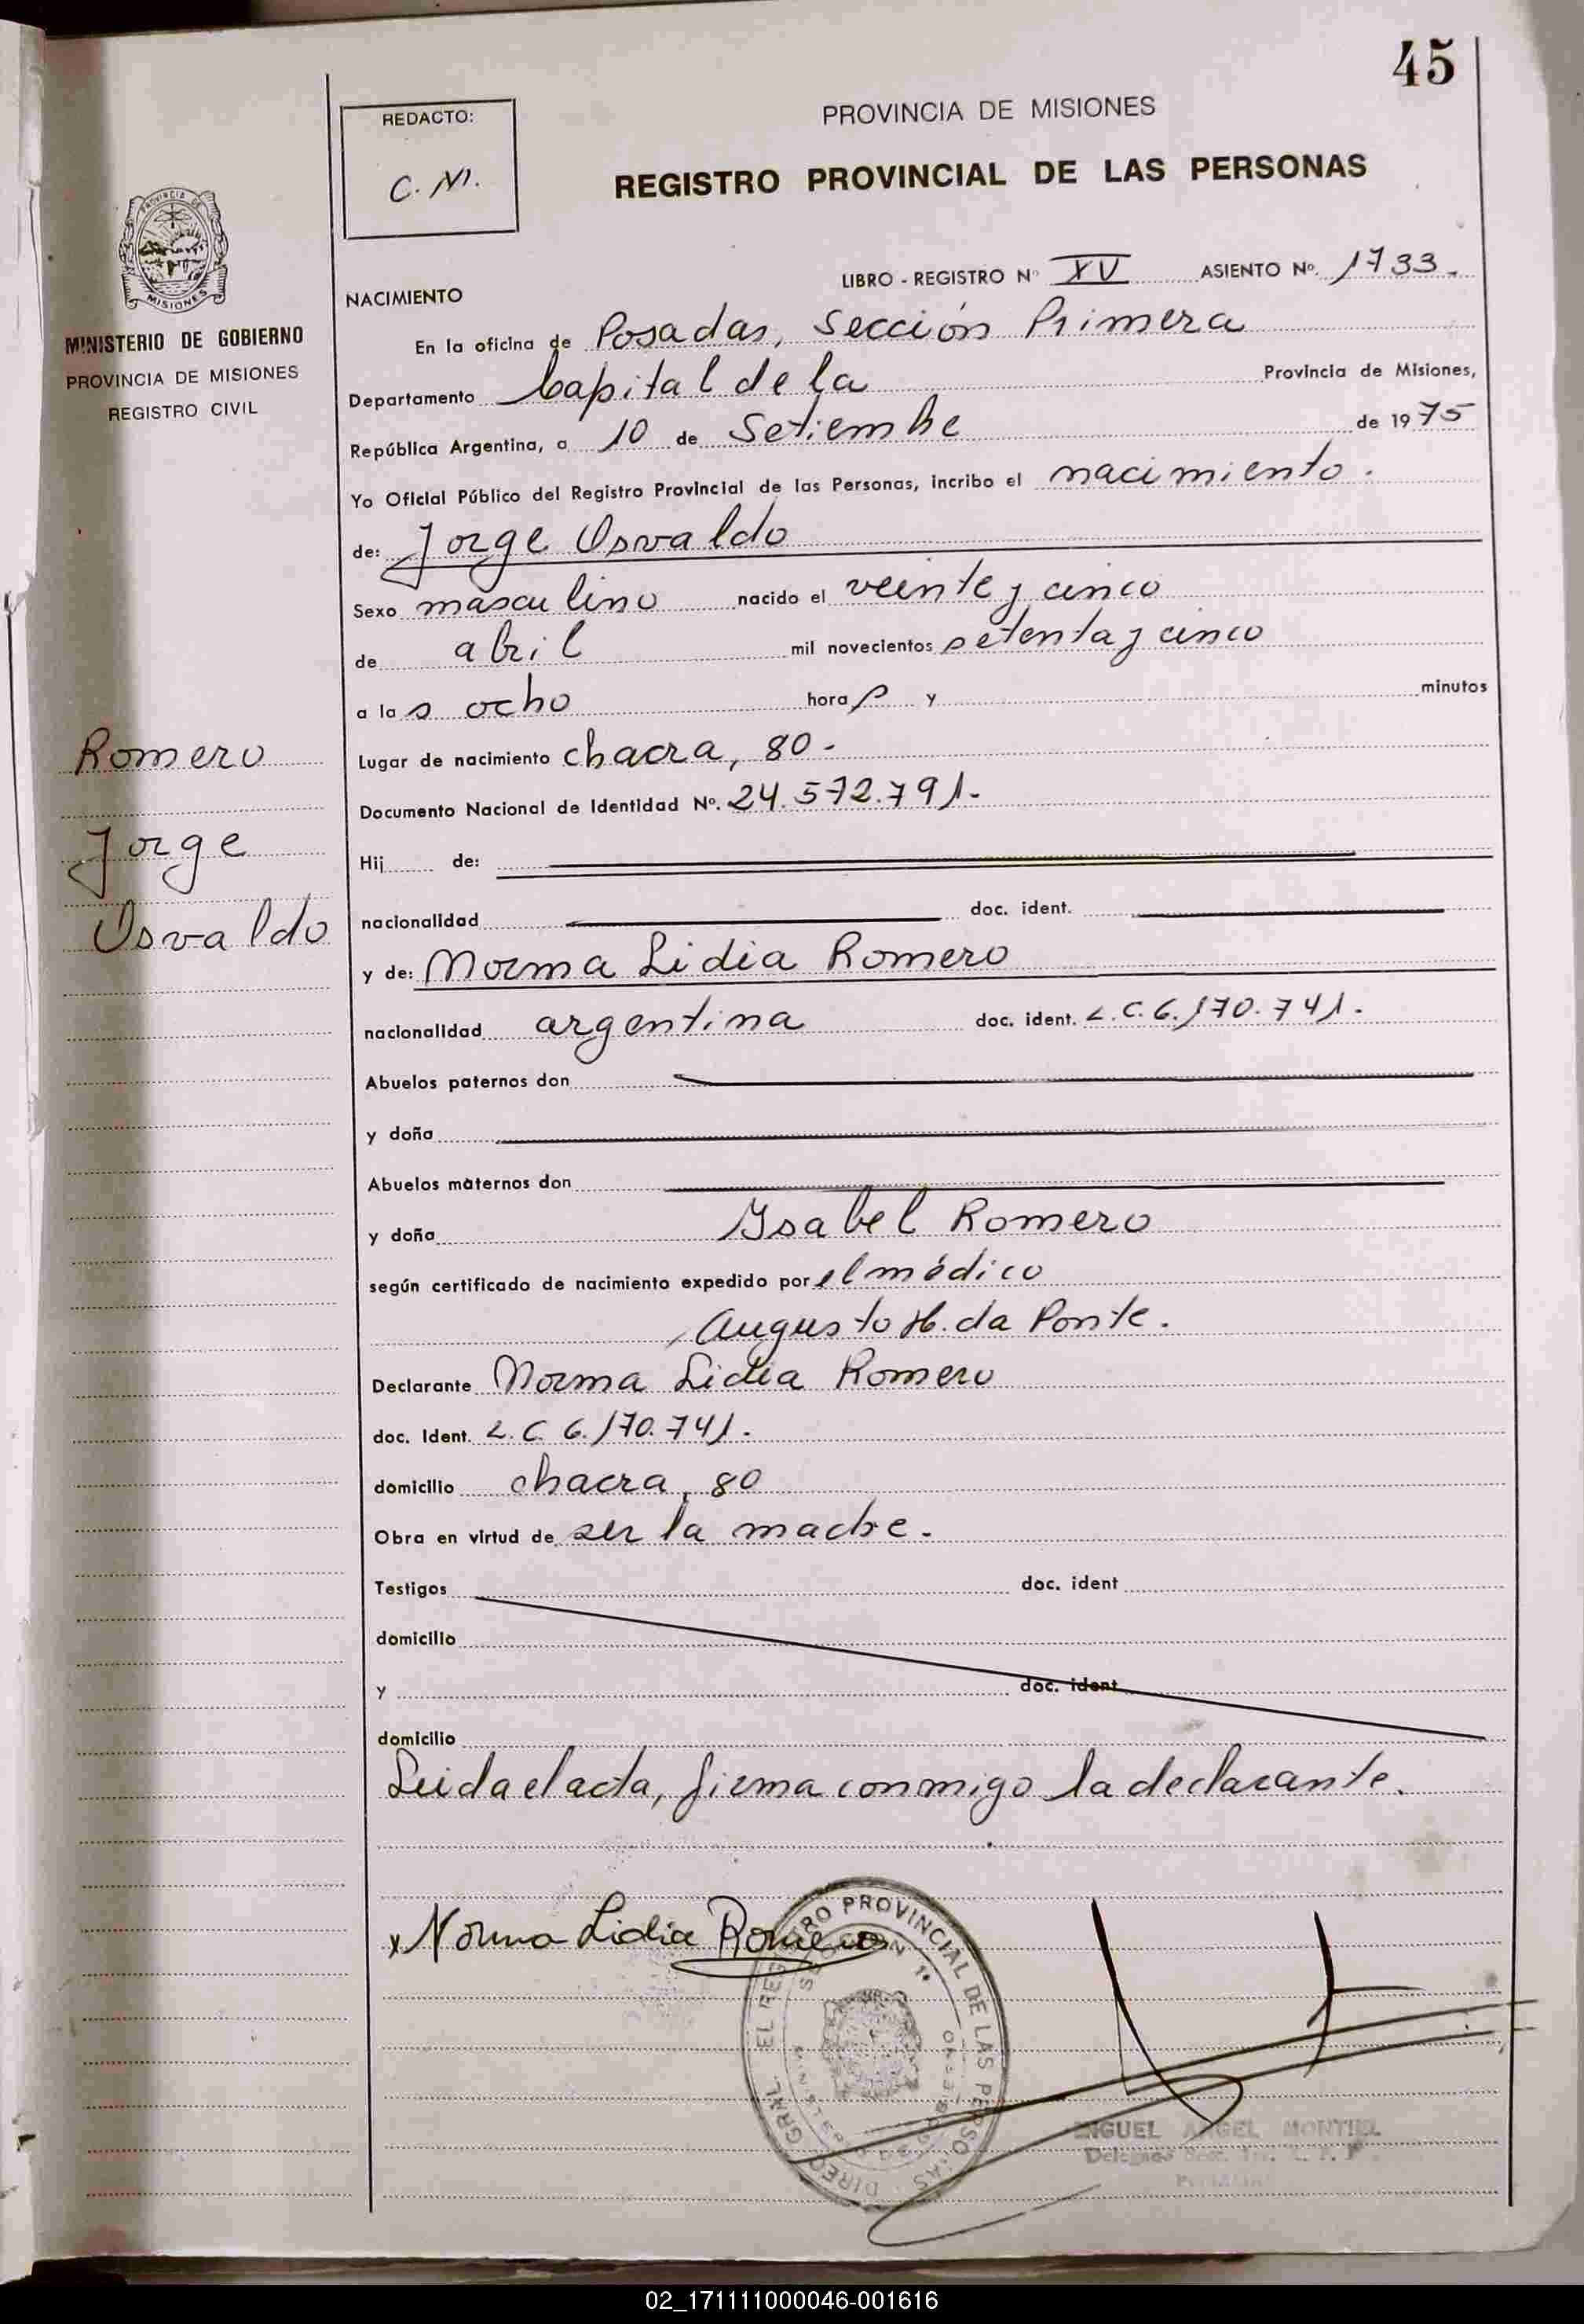 45
REDACTO:
C. M.
PROVINCIA DE MISIONES
REGISTRO PROVINCIAL DE LAS PERSONAS
PROVINCIA DE
MISIONES
MINISTERIO DE GOBIERNO
PROVINCIA DE MISIONES
REGISTRO CIVIL
LIBRO - REGISTRO Nº XV ASIENTO Nº. 1733.
NACIMIENTO
En la oficina de Posadas, Sección Primera
Departamento Capital de la Provincia de Misiones,
República Argentina, a 10 de Setiembre de 1975
Yo Oficial Público del Registro Provincial de las Personas, incribo el nacimiento.
de: Jorge Osvaldo
Sexo masculino nacido el veinte y cinco
de abril mil novecientos setenta y cinco
a las ocho horas y minutos
Lugar de nacimiento chacra, 80-
Documento Nacional de Identidad Nº. 24.572.791.
Hij de:
nacionalidad doc. ident.
y de: Norma Lidia Romero
nacionalidad argentina doc. ident. L.C. 6.170.741.
Abuelos paternos don
y doña
Abuelos maternos don
y doña Ysabel Romero
según certificado de nacimiento expedido por el médico
Augusto H. da Ponte.
Declarante Norma Lidia Romero
doc. Ident. L.C 6.170.741.
domicilio chacra, 80
Obra en virtud de ser la madre.
Testigos doc. ident
domicilio
y doc. ident
domicilio
Leida el acta, firma conmigo la declarante.
Romero
Jorge
Osvaldo
x Norma Lidia Romero
DIREC. GRAL. EL REGISTRO PROVINCIAL DE LAS PERSONAS
SECCION 1º
MIGUEL ANGEL MONTIEL
Delegado
02_171111000046-001616